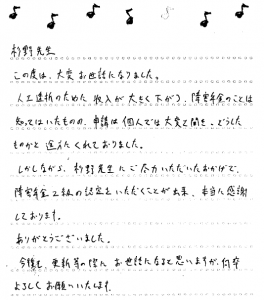 杉野先生
この度は、大変お世話になりました。
人工透析のために収入が大きく下がり、障害年金のことは
知ってはいたものの、申請は個人では大変と聞き、どうした
ものかと途方にくれておりました。
しかしながら、杉野先生にご尽力いただいたおかげで、
障害年金2級の認定をいただくことが出来、本当に感謝
しております。
ありがとうございました。
今後も、更新等の際に、お世話になると思いますが、何卒
よろしくお願いいたします。